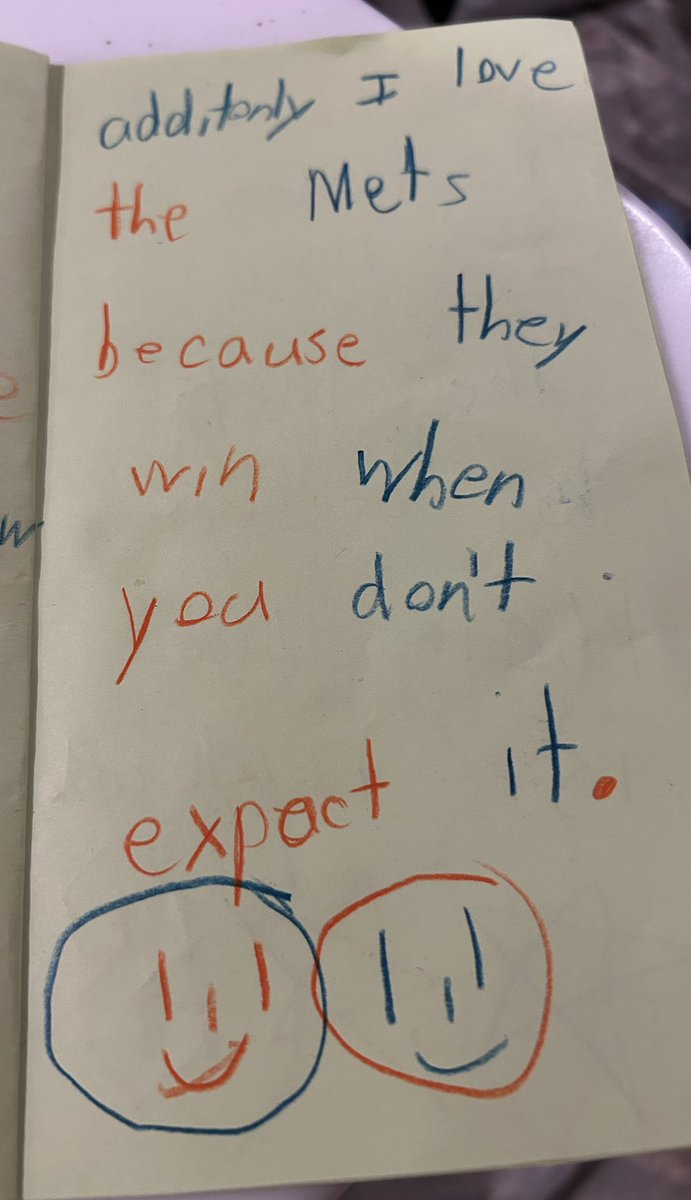 additonly I love
the Mets
because they
win when
you don't
expect it.